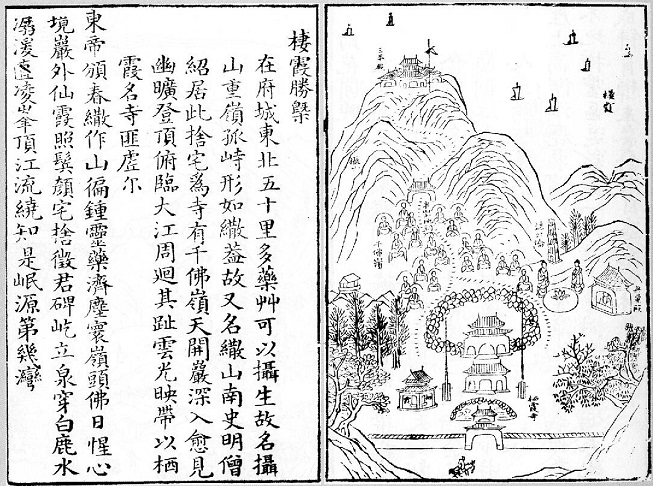 棲霞勝槩
在府城東北五十里多藥艸可以攝生故名攝
山重嶺孤峙形如繖葢故又名繖山南史明僧
紹居此捨宅爲寺有千佛嶺天開巖深入愈見
幽曠登頂俯臨大江周迴其趾雲光映帶以栖
霞名寺匪虛尓
東帝頒春繖作山徧鍾靈藥濟塵寰嶺頭佛日惺心
境巖外仙霞照鬢顏宅捨徵君碑屹立泉穿白鹿水
潺湲凌峯頂江流繞知是岷源第幾灣
千佛嶺
栖霞寺